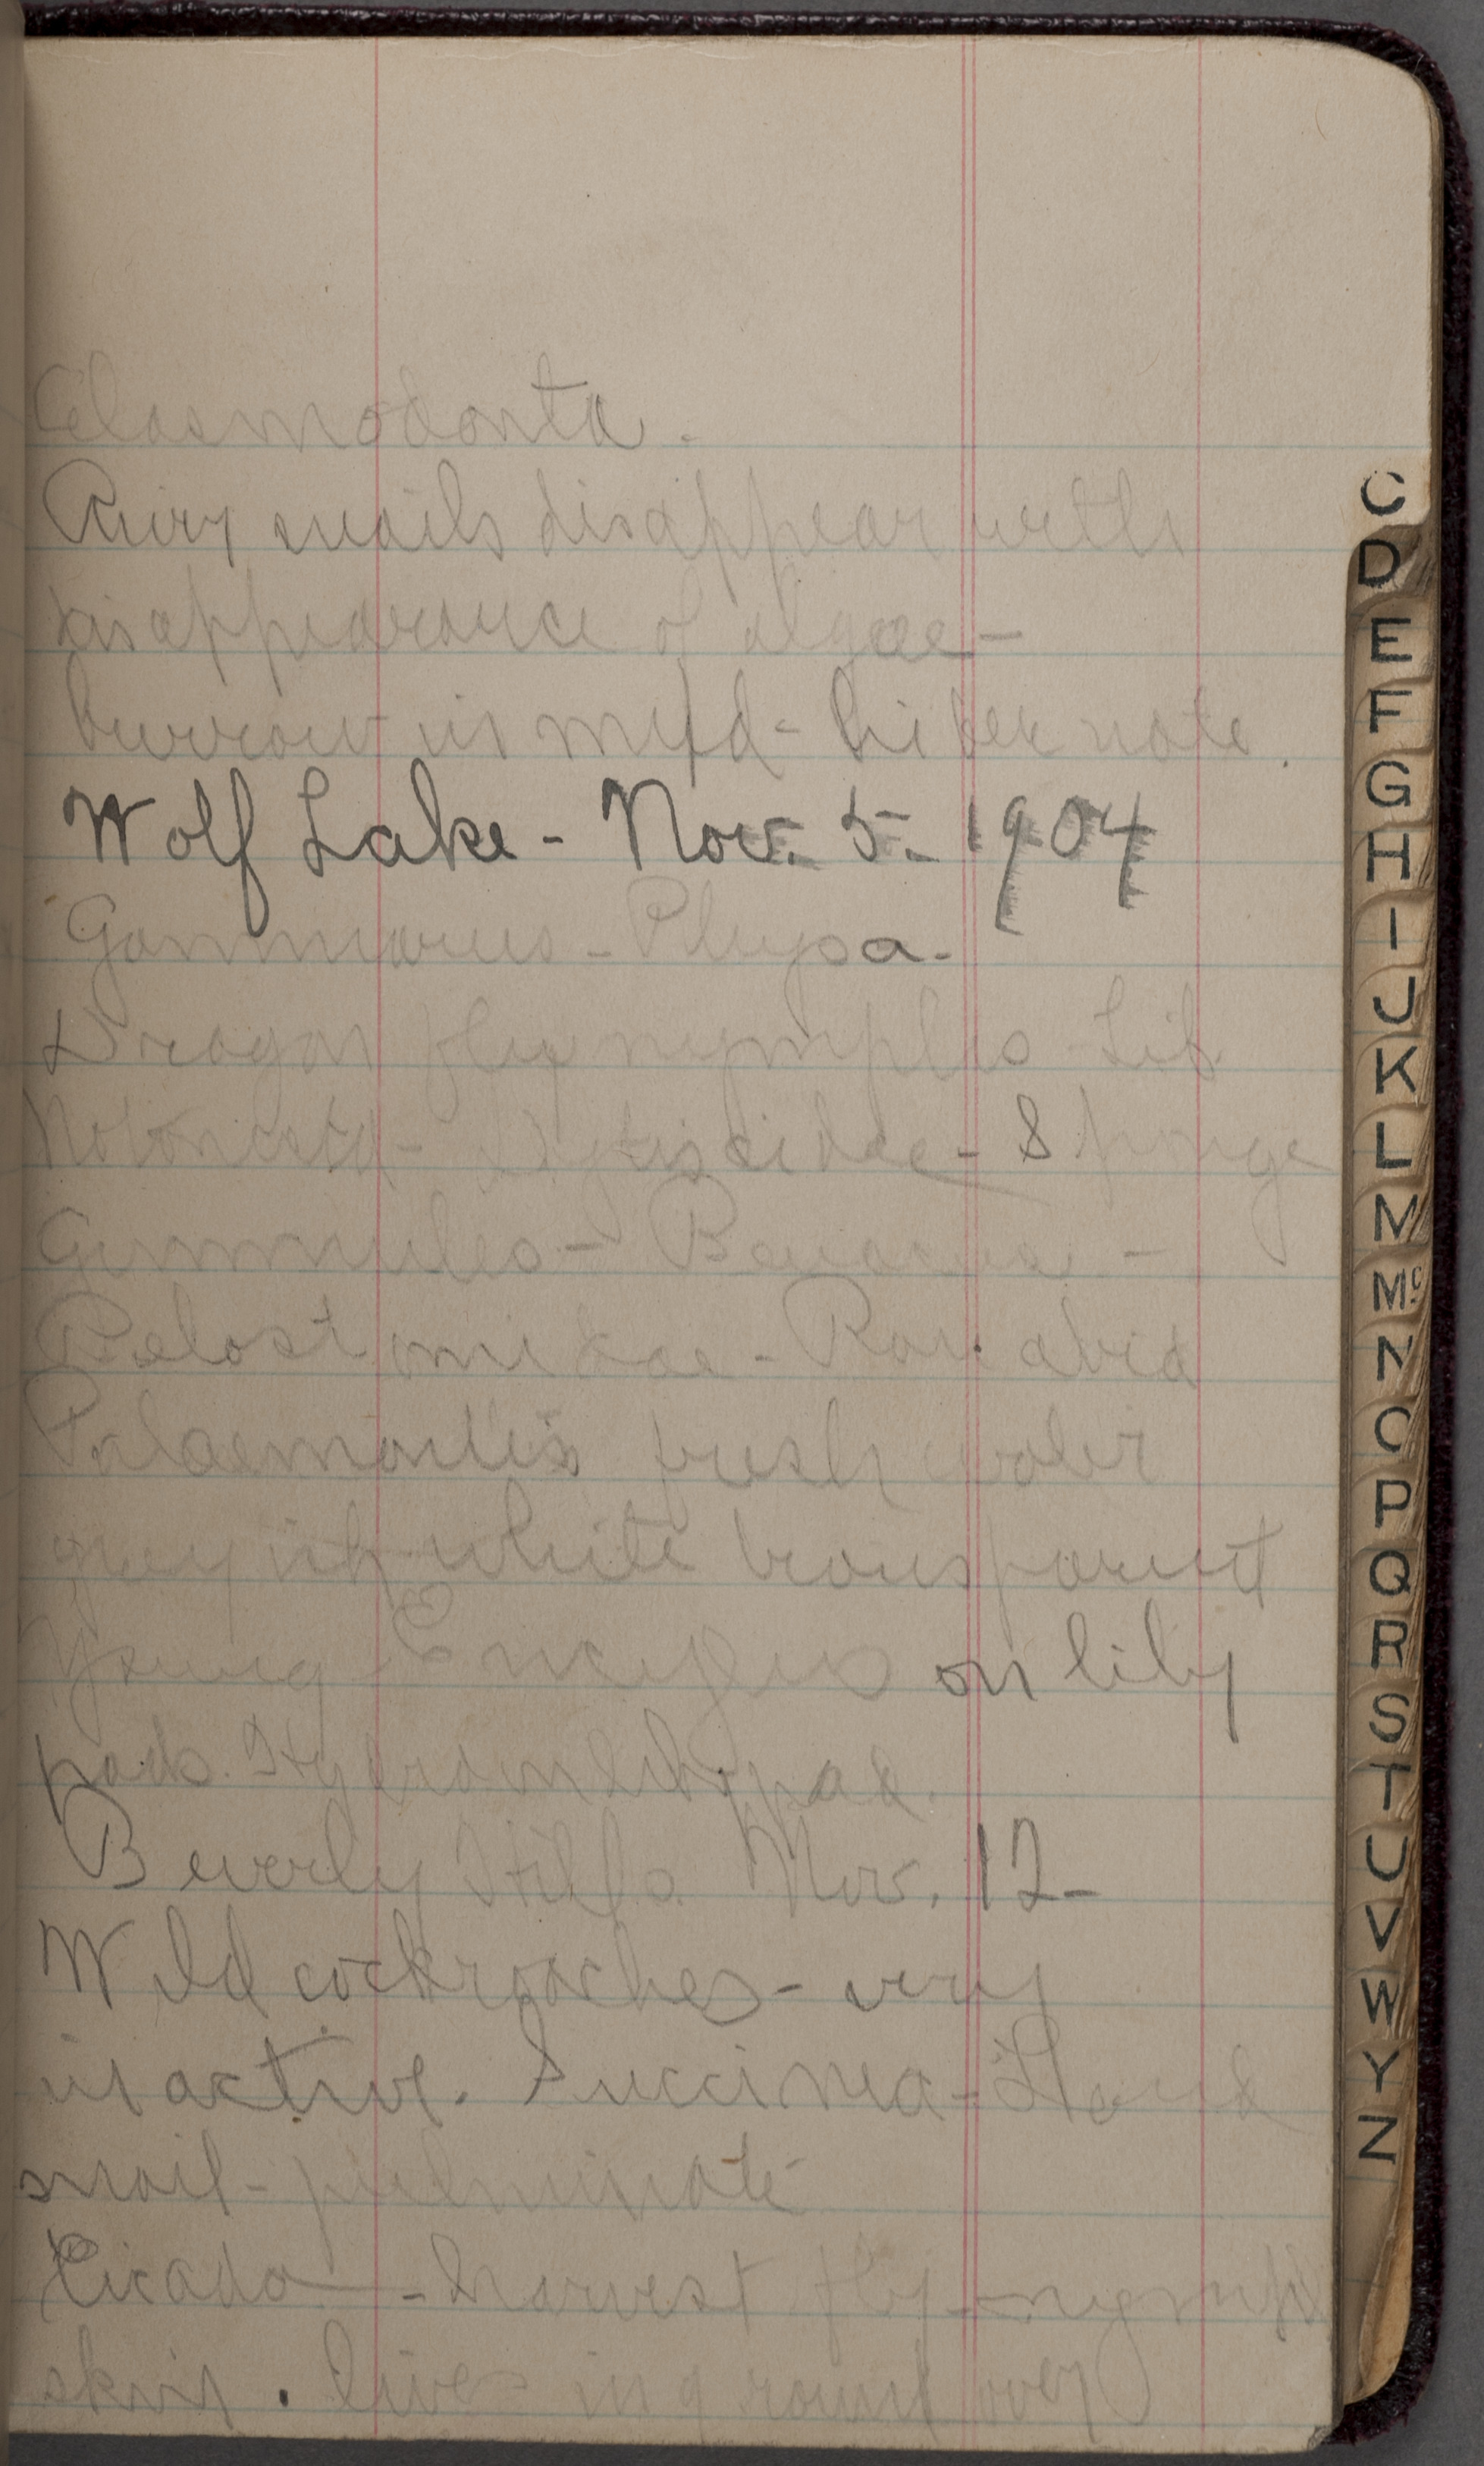 Elasmodonta.
River snails disappear with
disappearance of algae -
burrow in mud - hibernate.
Wolf Lake - Nov. 5 - 1904
Gammarus - Physa -
Dragon fly nymphs - Lib.
Notonecta - Dytiscidae - Sponge
Gemmules - Benacus -
Belostomidae -
Palaemonetes fresh water
greyish white transparent
Young on lily
pads.
Beverly Hills Nov. 12 -
Wild cockroaches - very
inactive. Succinea -
snail - pulminate
Cicada - harvest fly - nymph
skin. lives in ground over
C
D
E
F
G
H
I
J
K
L
M
Mc
N
O
P
Q
R
S
T
U
V
W
Y
Z